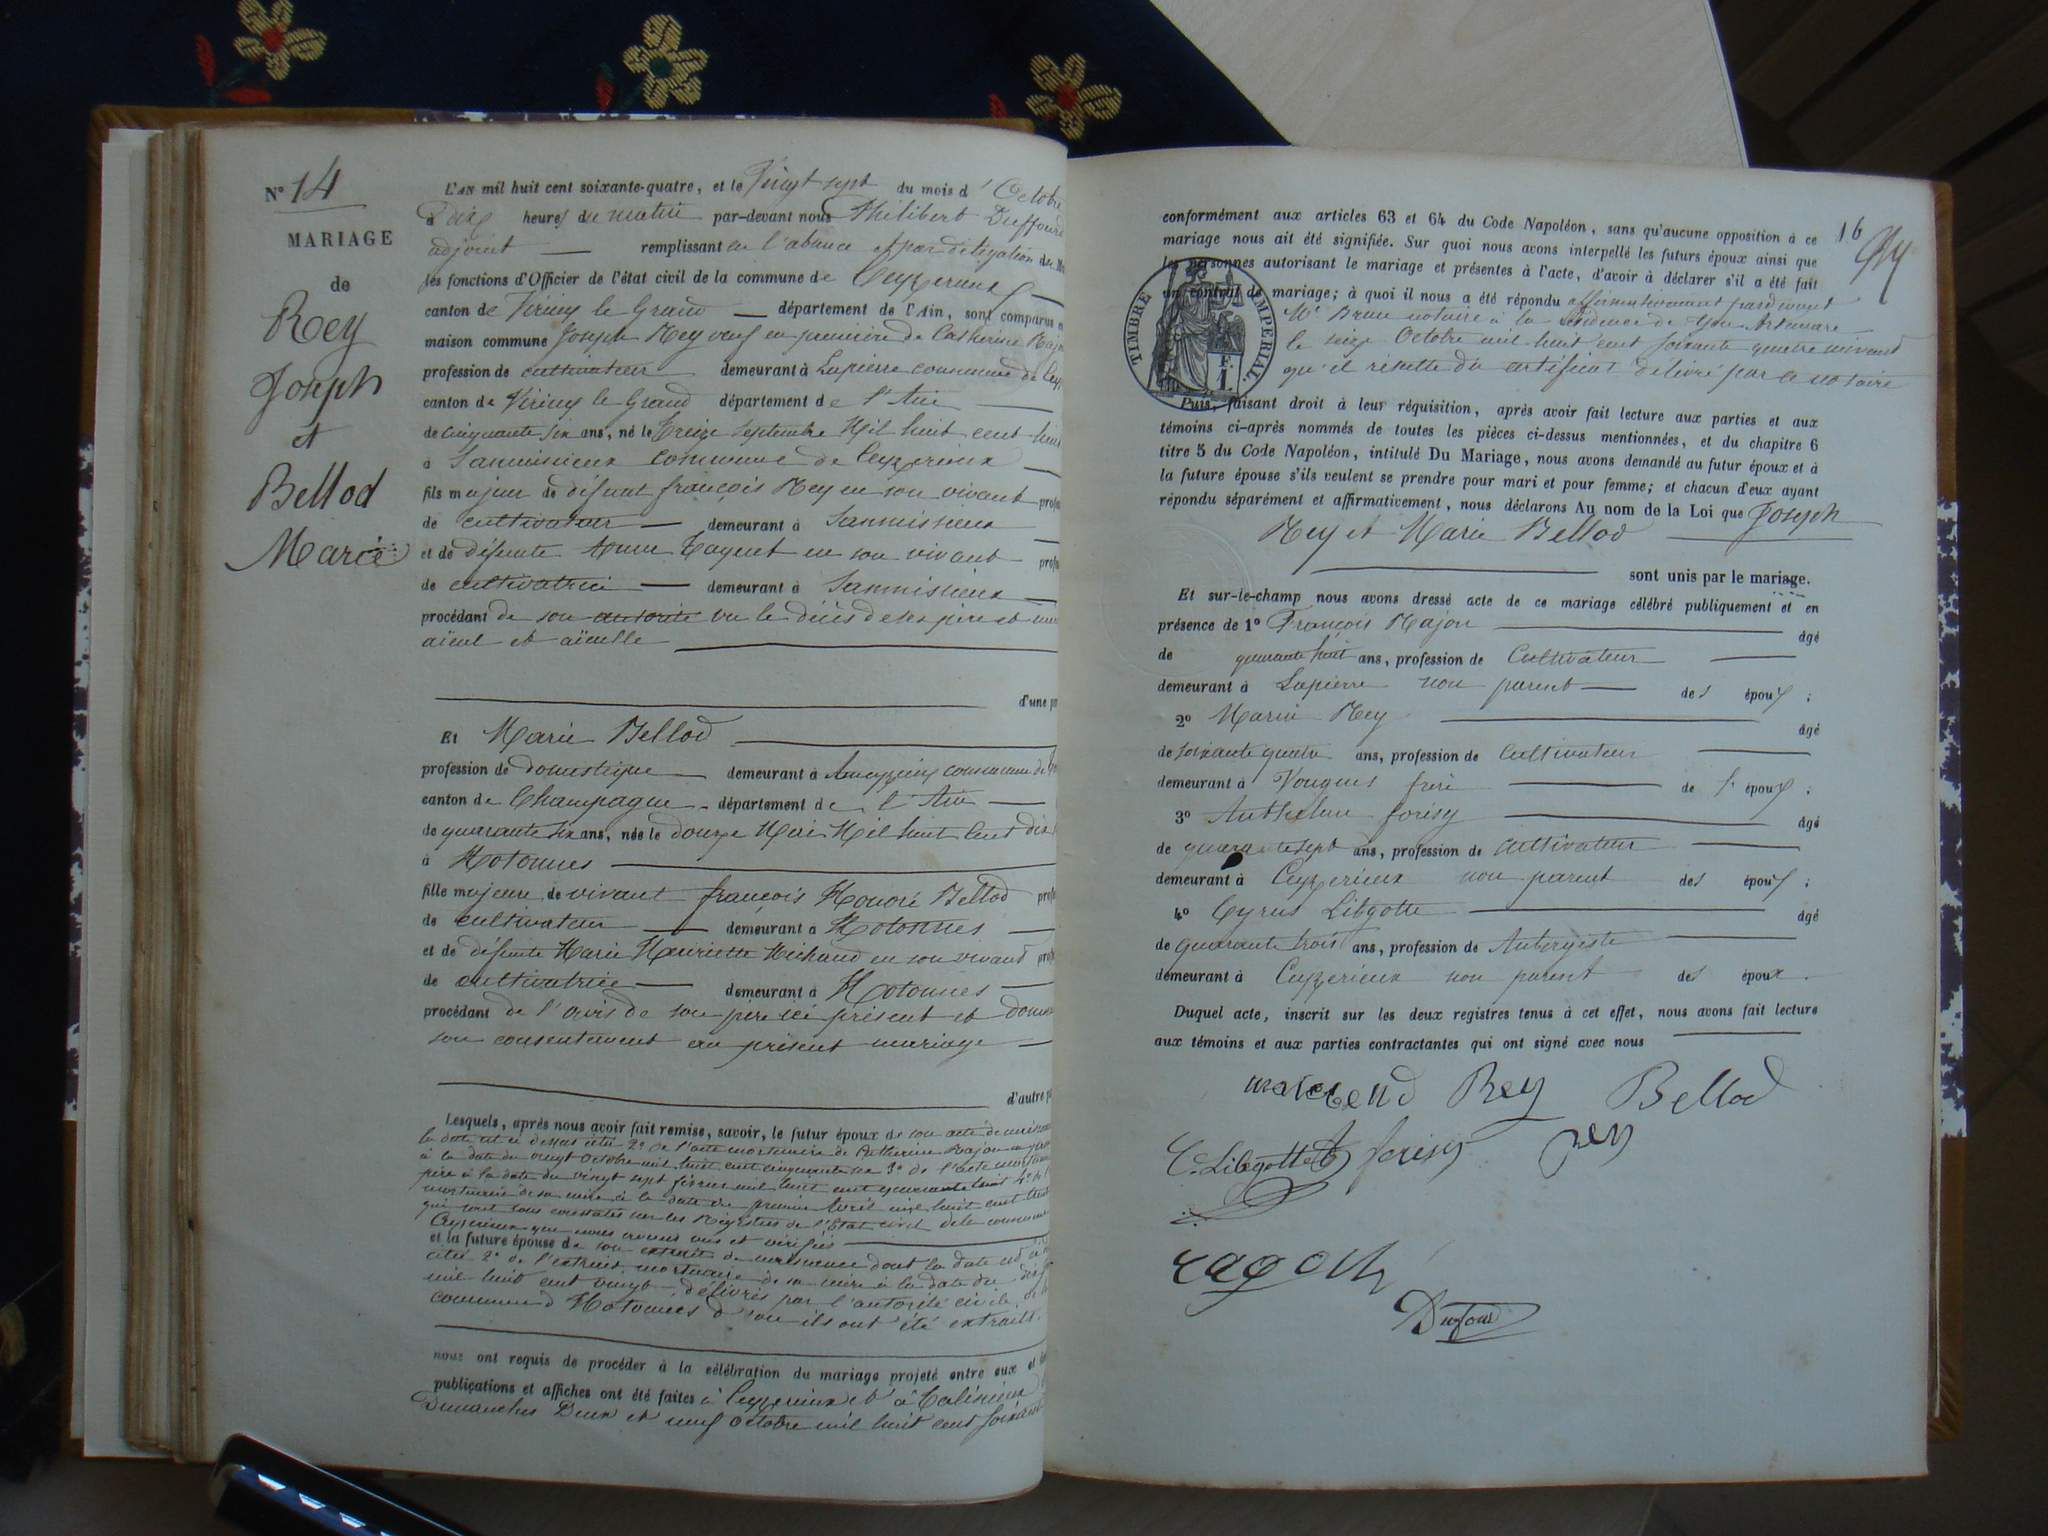 N° 14
MARIAGE
de
Rey
Joseph
et
Bellod
Marie
L'AN mil huit cent soixante-quatre, et le Vingt sept du mois d'Octobre
à dix heures du matin par-devant nous Philibert Duffourd
adjoint remplissant en l'absence et par délégation
les fonctions d'Officier de l'état civil de la commune de Ceyzerieux
canton de Virieu le Grand département de l'Ain, sont comparus en
maison commune Joseph Rey veuf en première de Catherine
profession de cultivateur demeurant à Lapierre commune de
canton de Virieu le Grand département de l'Ain
de cinquante six ans, né le treize septembre Mil huit cent huit
à Sanmissieux commune de Ceyzerieux
fils majeur de défunt françois Rey en son vivant
de cultivateur demeurant à Sanmissieux
et de défunte Anne en son vivant
de cultivatrice demeurant à Sanmissieux
procédant de son autorité vu le décès de ses père et
aïeul et aïeulle
d'une
Et Marie Bellod
profession de domestique demeurant à Ameyzieux commune de
canton de Champagne département de l'Ain
de quarante six ans, née le douze Mai Mil huit Cent dix
à Hotonnes
fille majeure de vivant françois Honoré Bellod
de cultivateur demeurant à Hotonnes
et de défunte Marie Henriette Michaud en son vivant
de cultivatrice demeurant à Hotonnes
procédant de l'avis de son père ici présent et
son consentement au présent mariage
d'autre
Lesquels, après nous avoir fait remise, savoir, le futur époux de son acte de
la date est ci dessus citée 2° de l'acte mortuaire de Catherine
à la date du vingt octobre mil huit cent cinquante 3° de l'acte
père à la date du vingt sept février mil huit cent quarante huit 4° de
mortuaire de sa mère à la date du premier Avril mil huit cent
qui sont tous constatés sur les Registres de l'Etat civil de la commune
Ceyzerieux que nous avons vus et vérifiés
et la future épouse de son extrait de naissance dont la date est
citée 2° de l'extrait mortuaire de sa mère à la date du
mil huit cent vingt délivrés par l'autorité civile de la
commune d'Hotonnes d'où ils ont été extraits.
nous ont requis de procéder à la célébration du mariage projeté entre eux et
publications et affiches ont été faites à Ceyzerieux et à Talissieux
Dimanches Deux et neuf octobre mil huit cent soixante
16
conformément aux articles 63 et 64 du Code Napoléon, sans qu'aucune opposition à ce
mariage nous ait été signifiée. Sur quoi nous avons interpellé les futurs époux ainsi que
les personnes autorisant le mariage et présentes à l'acte, d'avoir à déclarer s'il a été fait
un contrat de mariage; à quoi il nous a été répondu affirmativement pardevant
Me Brun notaire à la résidence de Artemare
le seize Octobre mil huit cent soixante quatre
qu'il résulte du certificat délivré par ce notaire
TIMBRE IMPERIAL
F. 1.
Puis, faisant droit à leur réquisition, après avoir fait lecture aux parties et aux
témoins ci-après nommés de toutes les pièces ci-dessus mentionnées, et du chapitre 6
titre 5 du Code Napoléon, intitulé Du Mariage, nous avons demandé au futur époux et à
la future épouse s'ils veulent se prendre pour mari et pour femme; et chacun d'eux ayant
répondu séparément et affirmativement, nous déclarons Au nom de la Loi que Joseph
Rey et Marie Bellod
sont unis par le mariage.
Et sur-le-champ nous avons dressé acte de ce mariage célébré publiquement et en
présence de 1° François Rajon âgé
de quarante huit ans, profession de Cultivateur
demeurant à Lapierre non parent des époux;
2° Marin Rey âgé
de soixante quatre ans, profession de Cultivateur
demeurant à Vongnes frère de l'époux;
3° Anthelme forisy âgé
de quarante sept ans, profession de cultivateur
demeurant à Ceyzerieux non parent des époux;
4° Cyrus Libgotte âgé
de quarante trois ans, profession de Aubergiste
demeurant à Ceyzerieux non parent des époux.
Duquel acte, inscrit sur les deux registres tenus à cet effet, nous avons fait lecture
aux témoins et aux parties contractantes qui ont signé avec nous
Rey Bellod
C. Libgotte forisy Rey
Dufour